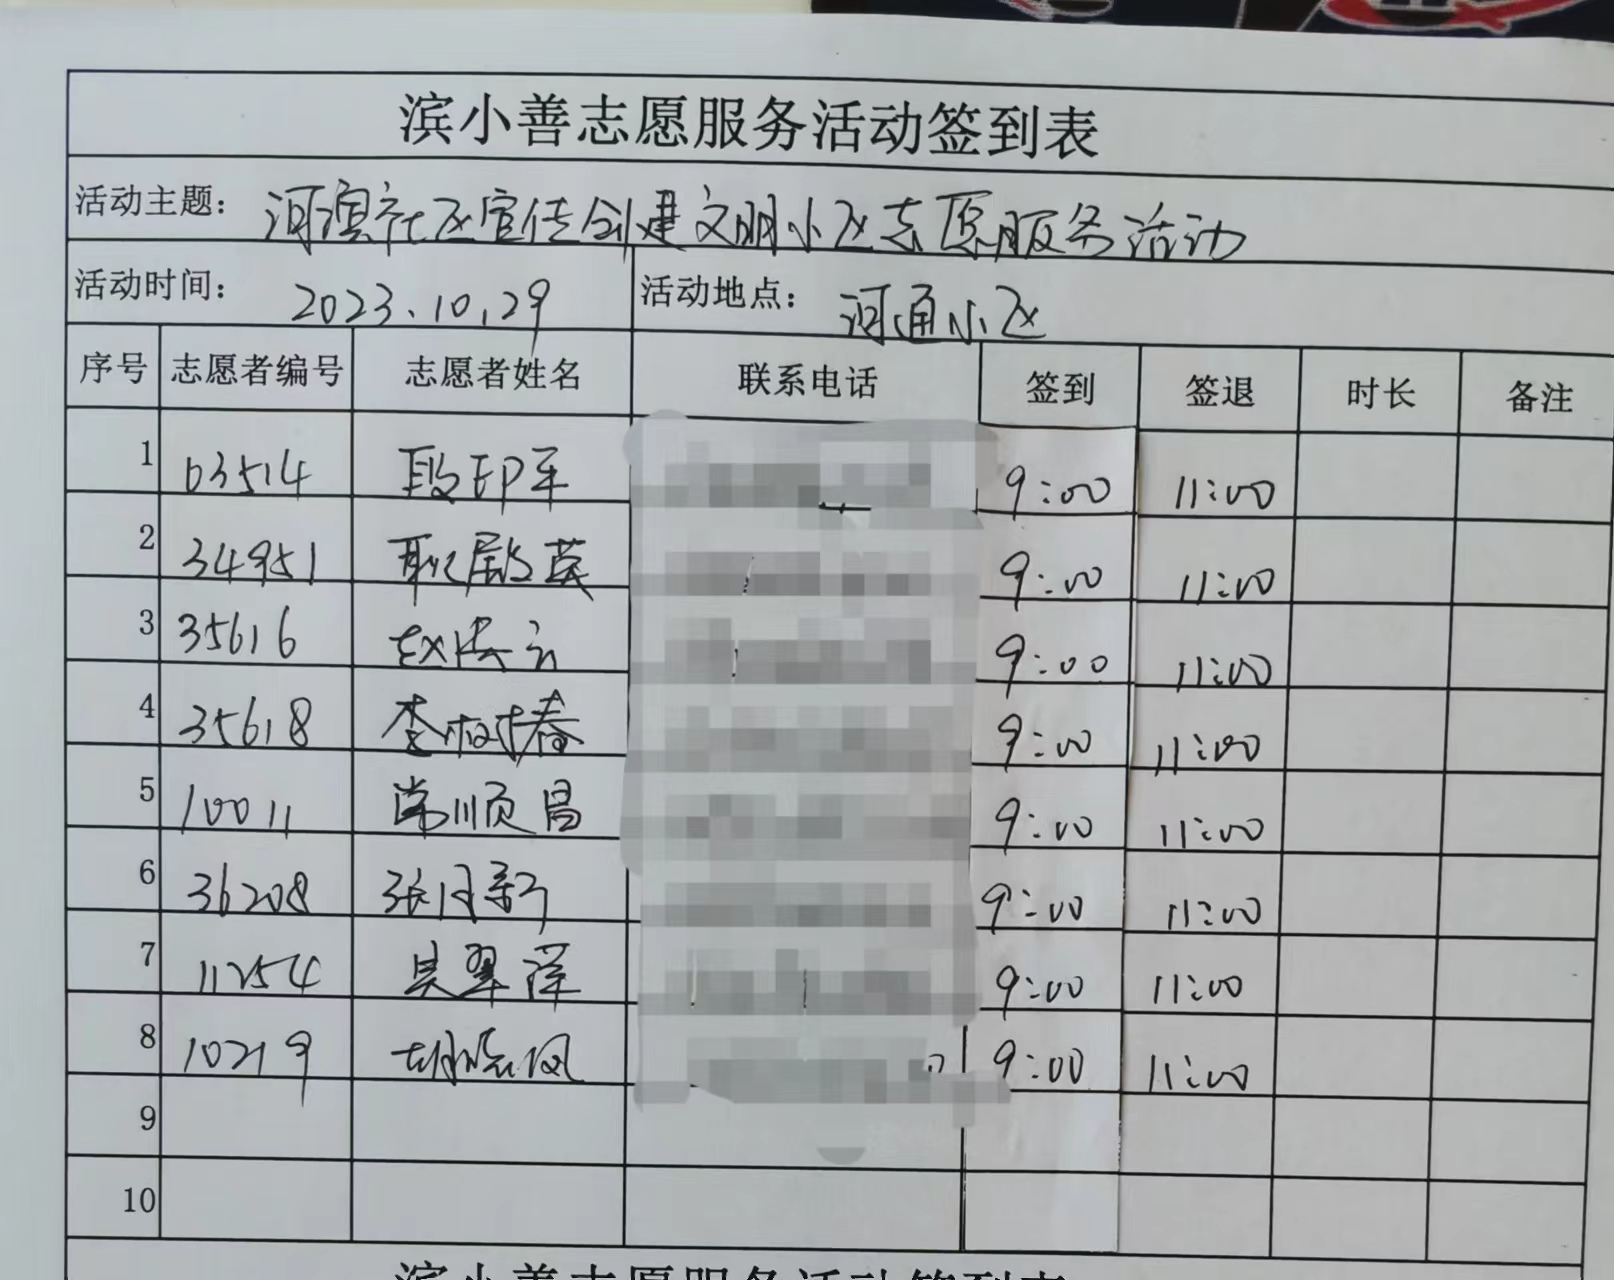 滨小善志愿服务活动签到表
活动主题： 河滨社区宣传创建文明小区志愿服务活动
活动时间： 2023.10.29 活动地点： 河通小区
序号 志愿者编号 志愿者姓名 联系电话 签到 签退 时长 备注
1 03514 段印军 9:00 11:00
2 34951 耿殿英 9:00 11:00
3 35616 赵洪云 9:00 11:00
4 35618 李树春 9:00 11:00
5 10011 常顺昌 9:00 11:00
6 36208 张月新 9:00 11:00
7 11254 吴翠萍 9:00 11:00
8 10219 胡晓凤 9:00 11:00
9
10
滨小善志愿服务活动签到表